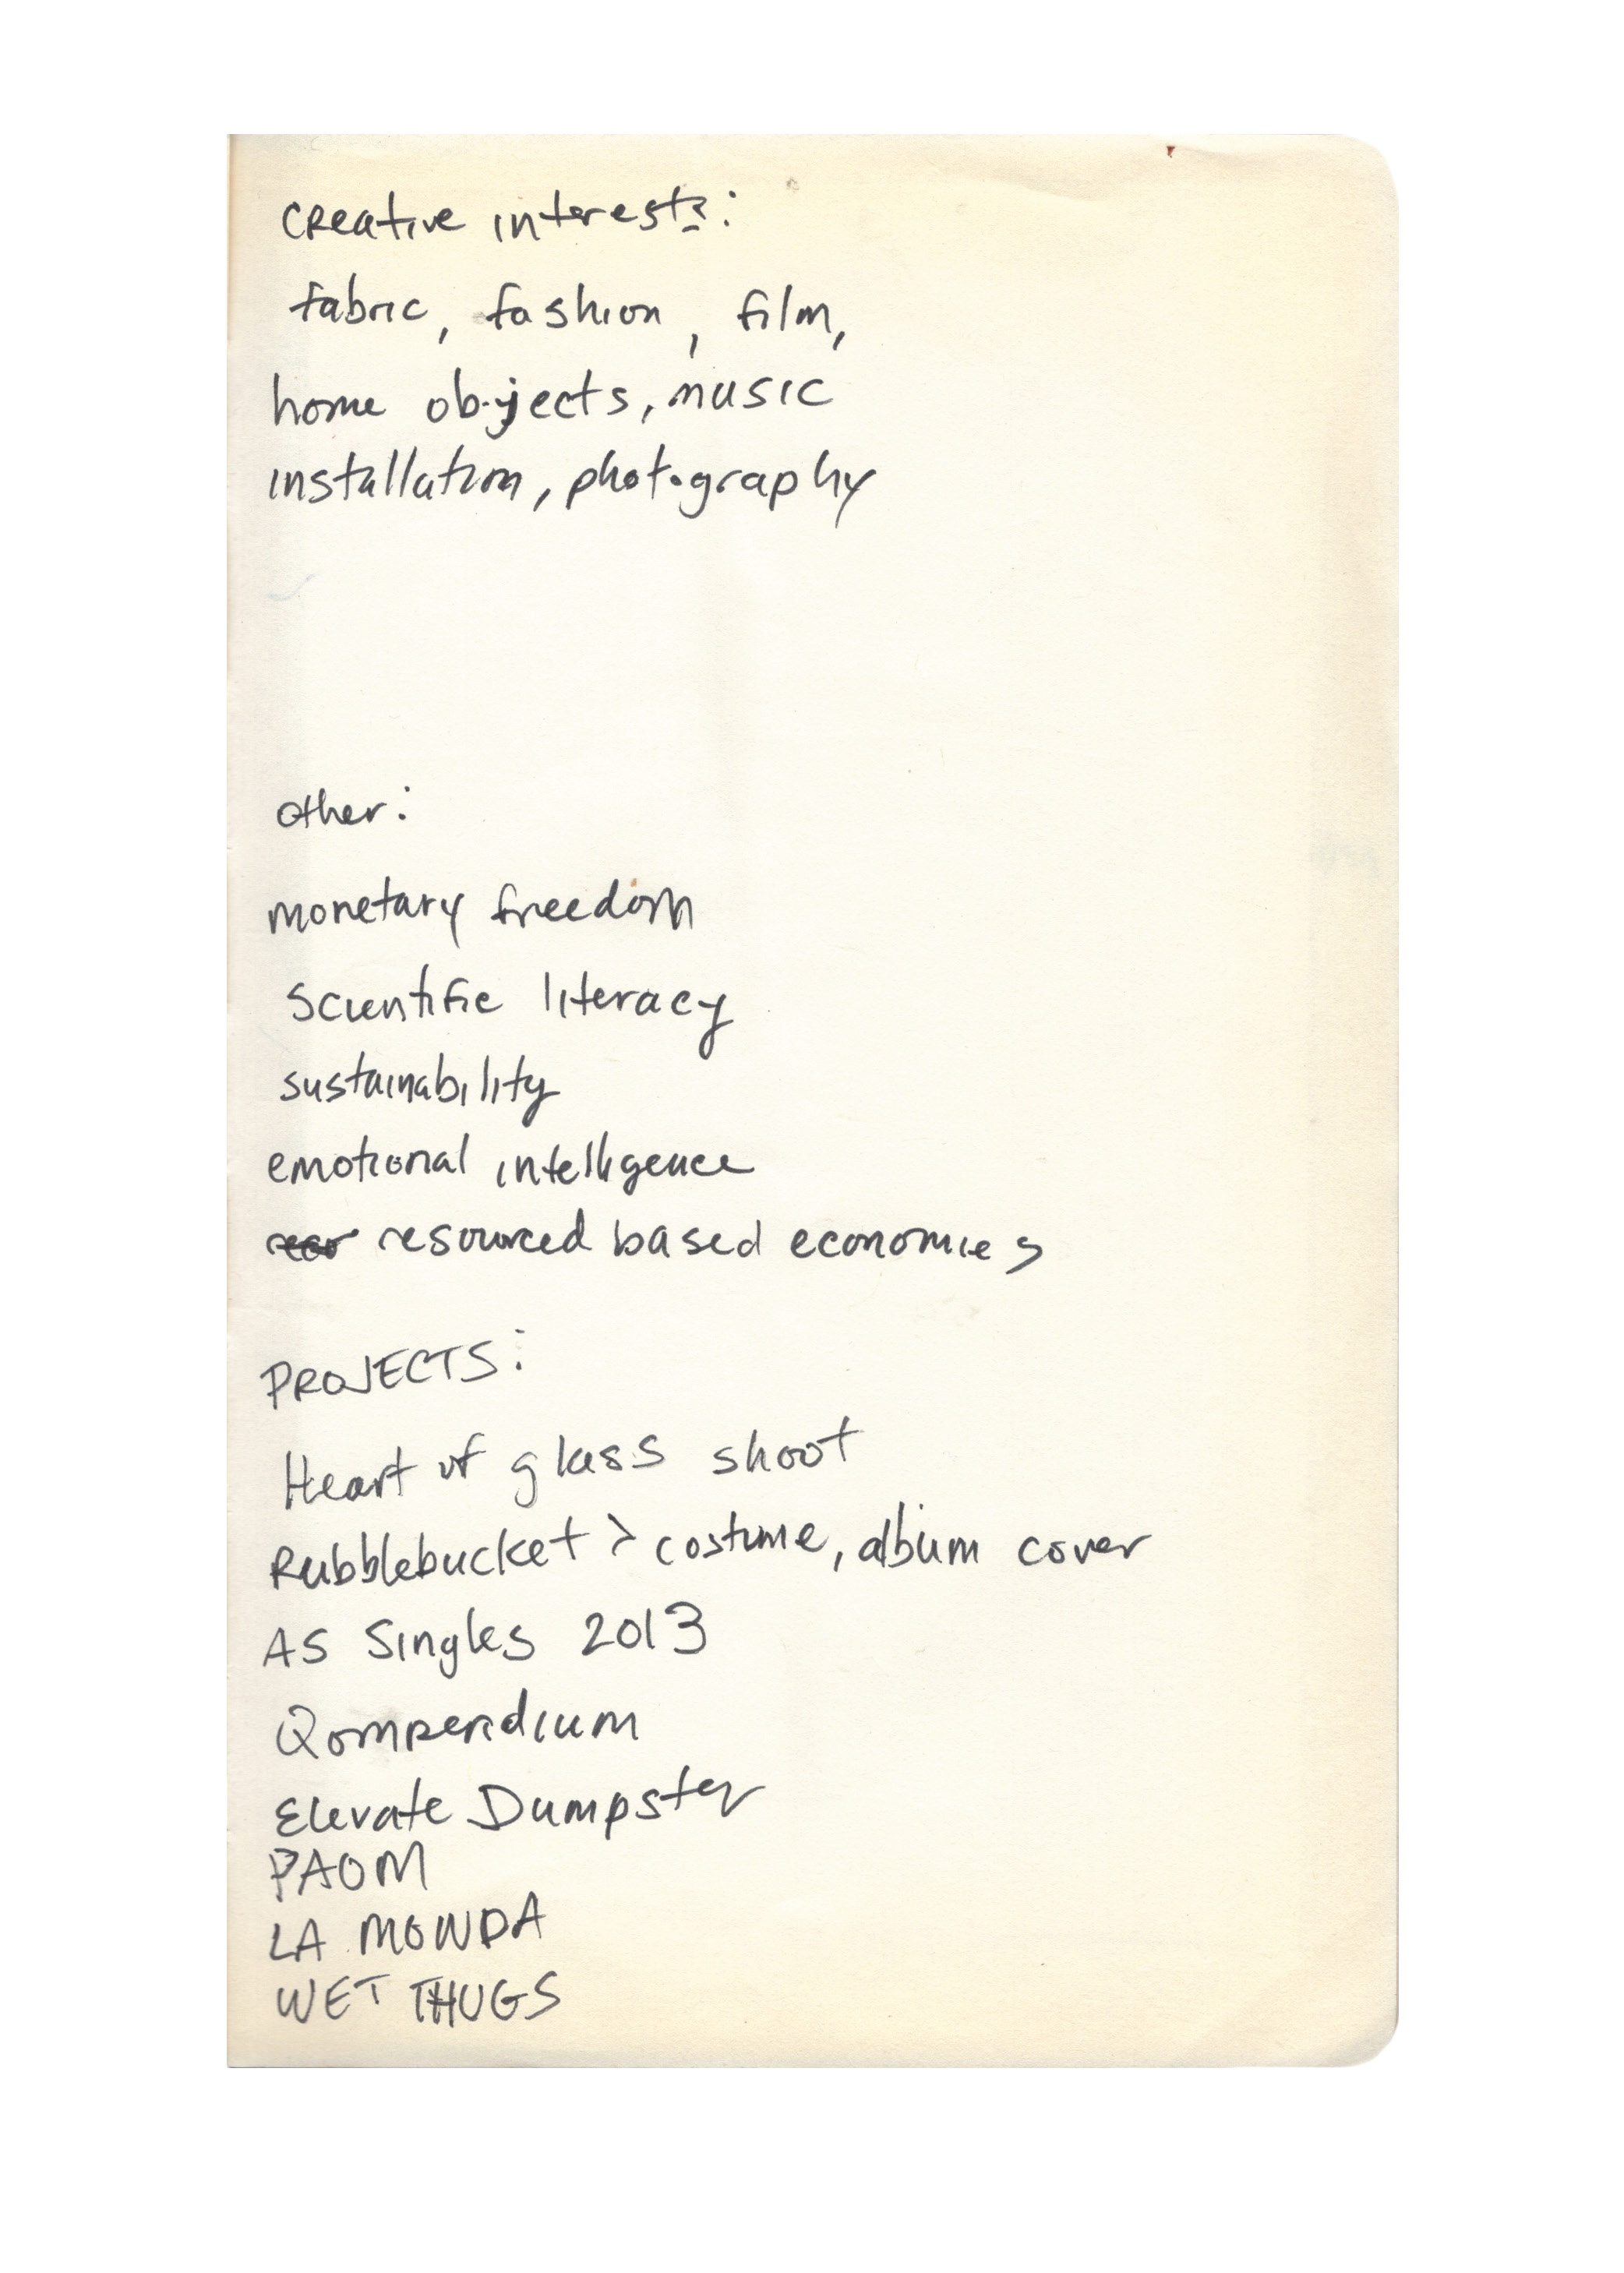 creative interests:
fabric, fashion, film,
home objects, music
installation, photography
other:
monetary freedom
scientific literacy
sustainability
emotional intelligence
resourced based economies
PROJECTS:
Heart of glass shoot
Rubblebucket > costume, album cover
AS Singles 2013
Qompendium
Elevate Dumpster
PAOM
LA MONDA
WET THUGS